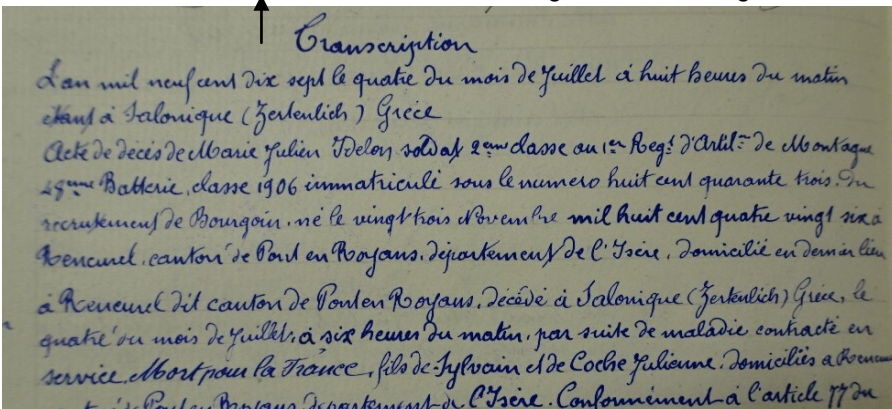 Transcription
L'an mil neuf cent dix sept le quatre du mois de Juillet à huit heures du matin
étant à Salonique (Zertenlich) Grèce
Acte de décès de Marie Julien Idelon soldat 2eme classe au 1er Regt d'Artilrie de Montagne
48eme Batterie, classe 1906 immatriculé sous le numero huit cent quarante trois. du
recrutement de Bourgoin. né le vingt trois Novembre mil huit cent quatre vingt six à
Rencurel. canton de Pont en Royans. département de l'Isère. domicilié en dernier lieu
à Rencurel dit canton de Pont en Royans. décédé à Salonique (Zertenlich) Grèce, le
quatre du mois de Juillet, à six heures du matin, par suite de maladie contracté en
service. Mort pour la France, fils de Sylvain et de Coche Julienne. domiciliés a Rencurel
de Pont en Royans département de l'Isère. Conformément à l'article 77 du